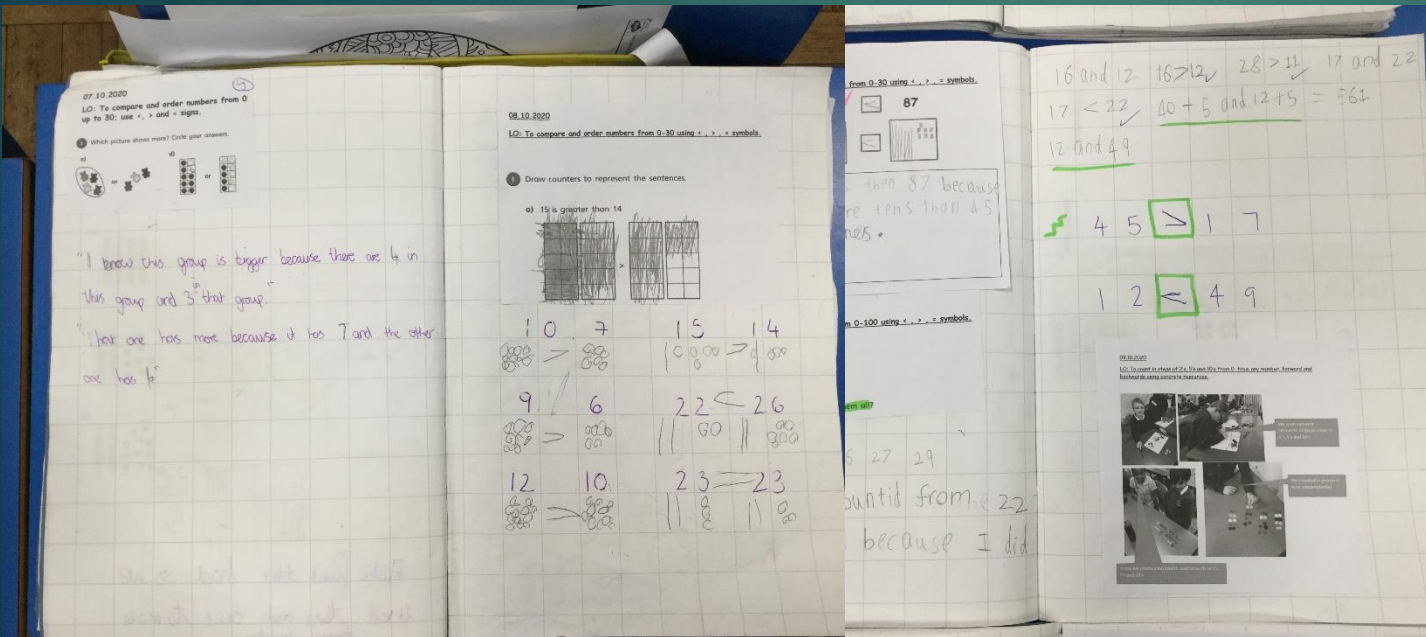 5
07.10.2020
LO: To compare and order numbers from 0
up to 30; use <, > and = signs.
1 Which picture shows more? Circle your answers.
a)
or
or
"I know this group is bigger because there are 4 in
this group and 3 in that group."
"That one has more because it has 7 and the other
one has 4"
08.10.2020
LO: To compare and order numbers from 0-30 using < , > , = symbols.
1 Draw counters to represent the sentences.
a) 15 is greater than 14
>
10 7 15 14
> >
9 6 22 < 26
>
12 10 23 = 23
>
from 0-30 using < , > , = symbols.
< 87
<
then 87 because
re tens than 45
nes.
m 0-100 using < , > , = symbols.
em all?
27 29
ountid from 22
because I did
16 and 12 16>12 28 > 11 17 and 22
17 < 22 40 + 5 and 12+5 = 561
12 and 49
4 5 > 1 7
1 2 < 4 9
09.10.2020
LO: To count in steps of 2's, 5's and 10's from 0, from any number, forward and
backwards using concrete resources.